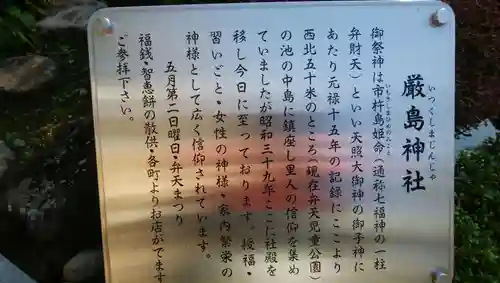 厳島神社
いつくしまじんじゃ
御祭神は市杵島姫命(通称七福神の一柱
いちきしまひめのみこと
弁財天)といい天照大御神の御子神に
あたり元禄十五年の記録にここより
西北五十米のところ(現在弁天児童公園)
の池の中島に鎮座し里人の信仰を集め
ていましたが昭和三十九年ここに社殿を
移し今日に至っております。授福・
習いごと・女性の神様・家内繁栄の
神様として広く信仰されています。
五月第二日曜日・弁天まつり
福銭・智恵餅の散供・各町よりお店がでます
ご参拝下さい。